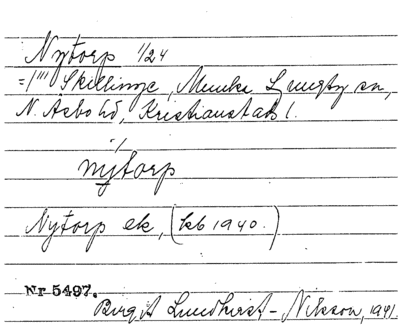 Nytorp 1/24
=/''' Skillinge, Munka Ljungby sn,
N. Åsbo hd, Kristianstads l.
nytorp
Nytorp ek, (kb 1940.)
Nr 5497.
Birgit Lundkvist-Nilsson, 1941.